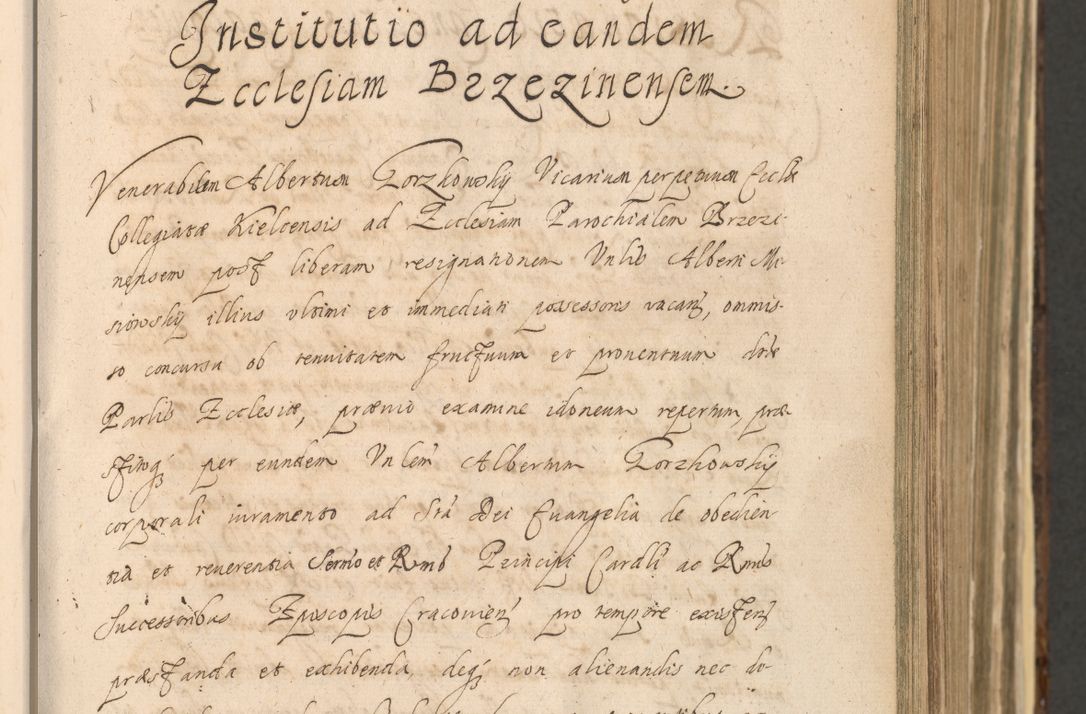 Institutio ad eandem
Ecclesiam Brzezinensem.
Venerabilem Albertum Gorzkowsky Vicarium perpetuum Ecclae
Collegiatae Kielcensis ad Ecclesiam Parochialem Brzezi-
nensem post liberam resignationem Vnlis Alberti Mi-
siowsky illius vltimi et immediati possessoris vacan, ommis-
so concursu ob tenuitatem fructuum et prouentuum dtae
Parlis Ecclesiae, praeuio examine idoneum repertum, prae-
stitoq per eundem Vnlem Albertum Gorzkowsky
corporali iuramento ad Sta Dei Euangelia de obedien
tia et reuerentia Sermo et Rmo Principi Cardli ac Rmis
Successoribus Episcopis Cracouien pro tempore existen
praestanda et exhibenda, deq non alienandis nec do-